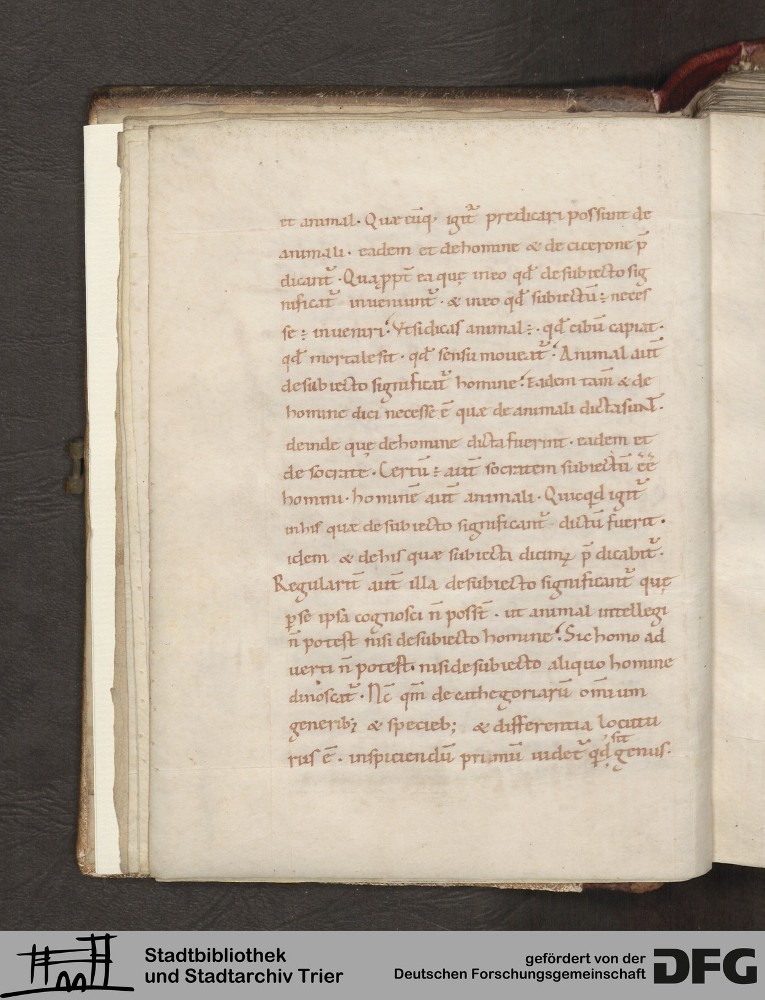 et animal. Quæ cūq. igit᷑ predicari possunt de
animali. eadem et dehomine & de cicerone p̄
dicant᷑. Quapropt̄ ea quę ineo qd̄ desubiecto sig
nificat᷑ inveniunt᷑. & ineo qd̄ subiectū; neces
se; inveniri. Vtsi dicas animal;. qd̄ cibū capiat.
qd̄ mortale sit. qd̄ sensu moveat᷑. Animal aut̄
desubiecto significat᷑ homine. Eadem tam̄ & de
homine dici necesse ē quæ de animali dicta sunt.
deinde quę dehomine dicta fuerint. eadem et
de socrate. Certū; aut̄ socratem subiectū ēē
homini. hominē aut̄ animali. Quicqd igit᷑
inhis quæ desubiecto significant᷑ dictū fuerit.
idem & dehis quæ subiecta dicunt᷑ p̄dicabit᷑.
Regularit̄ aut̄ illa desubiecto significant᷑ quę
ꝑse ipsa cognosci n̄ posst̄. ut animal intellegi
n̄ potest nisi desubiecto homine. Sic homo ad
verti n̄ potest. nisi desubiecto aliquo homine
dinoscat᷑. Nc̄ qm̄ de cathegoriarū omnium
generib; & specieb; & differentia locutu
rus ē. inspiciendū primū videt᷑ qd̄ sit genus.
Stadtbibliothek
und Stadtarchiv Trier
gefördert von der
Deutschen Forschungsgemeinschaft
DFG